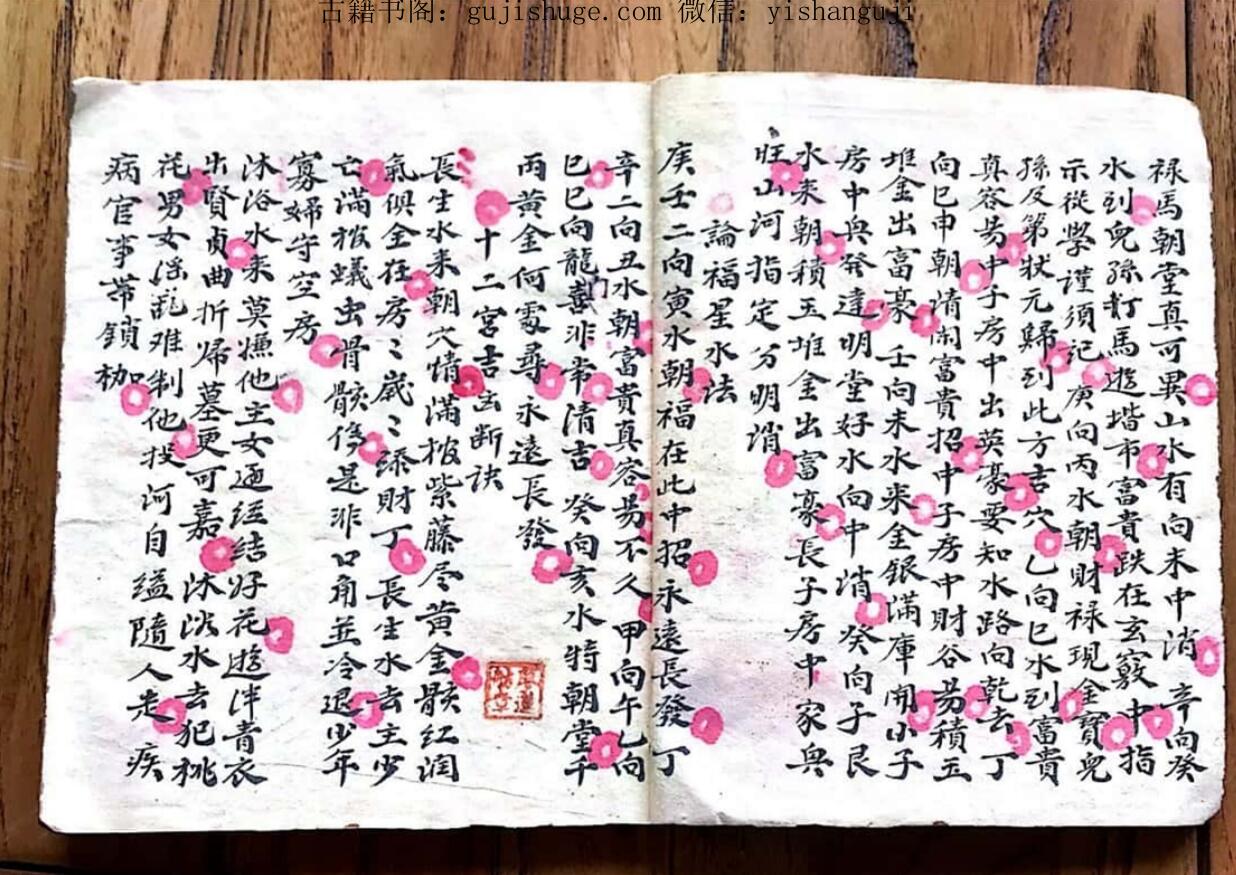 古籍书阁：gujishuge.com 微信：yishanguji
禄馬朝堂真可異山水有向未中消 辛向癸
水到兒孫打馬遊堦市富貴跌在玄竅中指
示從學謹須记庚向丙水朝財禄現金寶兒
孫及第状元歸到此方言穴乙向巳水到富貴
真容易中子房中出英豪要知水路向乾去丁
向巳申朝情闲富貴招中子房中財谷易積玉
堆金出富豪 壬向未水来金銀滿庫開小子
房中興發達明堂好水向中消癸向子艮
水来朝積玉堆金出富豪長子房中家興
旺山河指定分明消
論福星水法
庚壬二向寅水朝福在此中招永遠長發丁
辛二向丑水朝富貴真容易不久甲向午乙向
巳巳向龍非常清吉 癸向亥水特朝堂千
两黄金何處尋 永遠長發
十二宫吉凶断诀
長生水来朝穴情满棺紫藤尽黄金骸红润
氣俱全在房〻歲〻添財丁 長生水去主少
亡满棺蟻虫骨骸傷是非口角並冷退少年
寡婦守空房
沐浴水来莫嫌他主女通经结好花遊泮青衣
出賢貞曲折帰墓更可嘉 沐浴水去犯桃
花男女淫亂难制他投河自缢隨人走疾
病官事带鎖枷